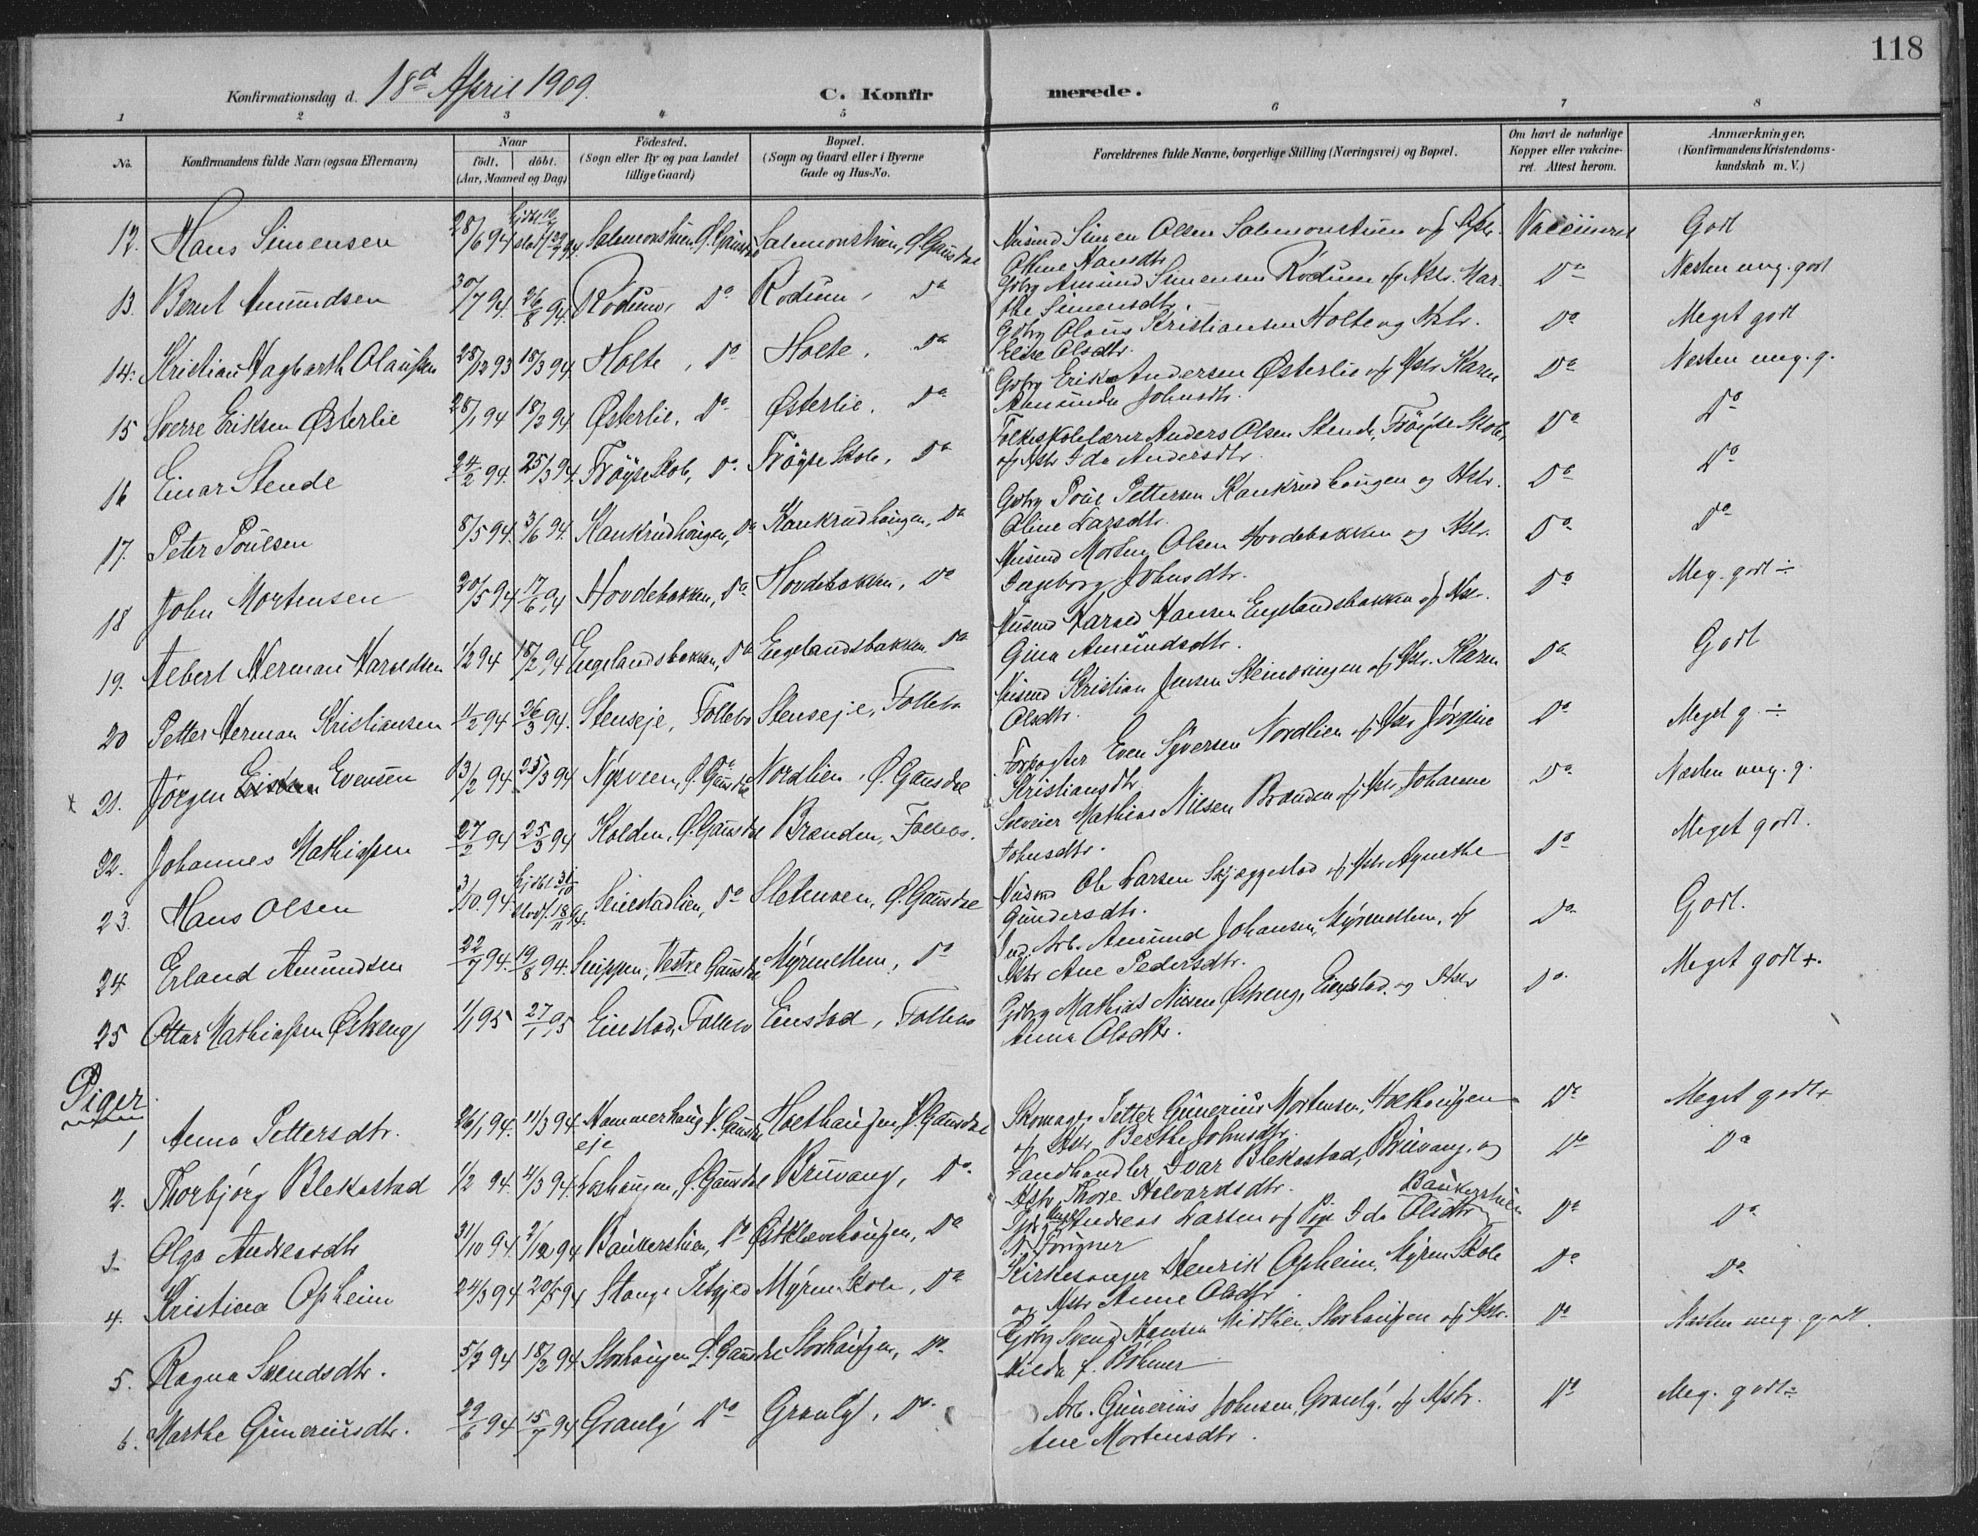 118
Konfirmationsdag d. 18d April 1909. C. Konfirmerede.
1 2 3 4 5 6 7 8
No. Konfirmandens fulde Navn (ogsaa Efternavn) Naar födt. döbt. (Aar, Maaned og Dag) Födested. (Sogn eller By og paa Landet tillige Gaard) Bopæl. (Sogn og Gaard eller i Byerne Gade og Hus-No. Forældrenes fulde Navne, borgerlige Stilling (Næringsvei) og Bopæl. Om havt de naturlige Kopper eller vakcineret. Attest herom. Anmærkninger. (Konfirmandens Kristendomskundskab m. V.)
12. Hans Simensen 28/6 94 Salmonstuen, Ø. Gausdal Salmonstuen, Ø. Gausdal Husmd Simen Olsen Salmonstuen og Hstr. Vaccineret Godt
Hansdtr.
13. Bernt Amundsen 30/7 94. 26/8 94. Rodum, Do Rodum, Do Gbrg Amund Simensen Rodum og Hstr. Marthe Simensdtr. Do Næsten meg. godt
14. Kristian Hagbarth Olaussen 28/12 93 18/3 94 Holte, Do Holte, Do Gbrg Olaus Kristiansen Holte og Hstr. Do Meget godt
Elise Olsdtr.
15 Sverre Eriksen Østerlie 28/1 94 18/3 94 Østerlie, Do Østerlie, Do Gbrg Erik Andersen Østerlie og Hstr Karen Do Næsten meg. g.
Amunda Johnsdtr.
16 Einar Stende 24/2 94. 25/3 94. Frøyse Skole, Do. Frøyse Skole, Do Folkeskolelærer Anders Olsen Stende, Frøyse Skole, Do Do
og Hstr Ida Andersdtr.
17. Peter Poulsen 8/5 94. 3/6 94. Kankrudhaugen, Do Kankrudhaugen, Do Gbrg Poul Pettersen Kankrudhaugen og Hstr. Do Do
Oline Larsdtr.
18 John Mortensen 20/5 94 17/6 94 Hovdebakken, Do Hovdebakken, Do Husmd Morten Olsen Hovdebakken og Hstr. Do Do
Ingeborg Johnsdtr.
19. Albert Herman Haraldsen 1/2 94 18/2 94 Engelandsbakken, Do Engelandsbakken Do Husmd Harald Hansen Engelandsbakken og Hstr. Do Meg. godt ÷
Gina Amundsdtr.
20 Petter Herman Kristiansen 11/2 94 26/3 94. Stenseje, Follebo Stenseje, Follebo Husmd Kristian Jensen og Hstr. Karen Do Godt
Olsdtr.
x 21. Jørgen Evensen 13/2 94. 25/3 94 Nysveen, Ø. Gausdal Nordlien, Ø. Gausdal Forpagter Even Syversen Nordlien og Hstr Jørgine Do Meget g. ÷
Kristiansdtr
22. Johannes Mathiassen 27/2 94 25/3 94 Kolden, Ø. Gausdal Brænden, Follebo. Mathias Nilsen Brænden og Hstr Johanne Do Næsten meg. g.
Johnsdtr.
23. Hans Olsen 3/10. 94 Seielstadlien, Do Ø. Gausdal Husmd Ole Larsen Skjæggestad og Hstr Agnethe Do Meget godt.
Gundersdtr.
24 Erland Amundsen 22/7 94. 19/8 94. Snippen, Vestre Gausdal Myrmellem, Do Ind. Arb. Amund Johansen, Myrmellem, og Do Godt.
Hstr Ane Pedersdtr.
25 Ottar Mathiassen Østeng 1/1 95 27/1 95 Einstad, Follebo Einstad, Follebo Gbrg Mathias Nilsen Østeng, Einstad og Hstr Do Meget godt +.
Anna Olsdtr.
Piger
1 Anna Pettersdtr. 26/1 94. 11/3 94 Hammerhaug eje V. Gausdal Holthaugen, Ø. Gausdal Skomager Petter Gunerius Mortensen, Holthaugen Do Meget godt +
og Hstr Berthe Johnsdtr.
2. Thorbjørg Blekastad 1/2 94 11/3 94. Loshaugen, Ø. Gausdal Bruvang, Do. Landhandler Ivar Blekastad, Bruvang, og Do Do
Hstr Thore Halvardsdtr.
3. Olga Andreasdtr 31/10 94 Baukerstuen, Do Do Andreas Larsen og Pige Ida Olsdtr Baukerstuen Do Do
4. Kristina Opheim 24/3 94 20/5 94 Stange Myren Skole, Do Kirkesanger Henrik Opheim, Myren Skole Do Do
og Hstr Anne Olsdtr.
5. Ragna Svendsdtr. 18/2 94 Storhaugen Ø. Gausdal Storhaugen, Do. Gbrg Svend Hansen Midtlien, Storhaugen og Hstr. Do Næsten meg. godt.
Hilda f. Böhmer
6. Marthe Guneriusdtr. 29/6 94 15/7 94 Granly Do Granly, Do. Arb. Gunerius Johnsen, Granly. og Hstr. Do Meg. godt ÷
Ane Mortensdtr.